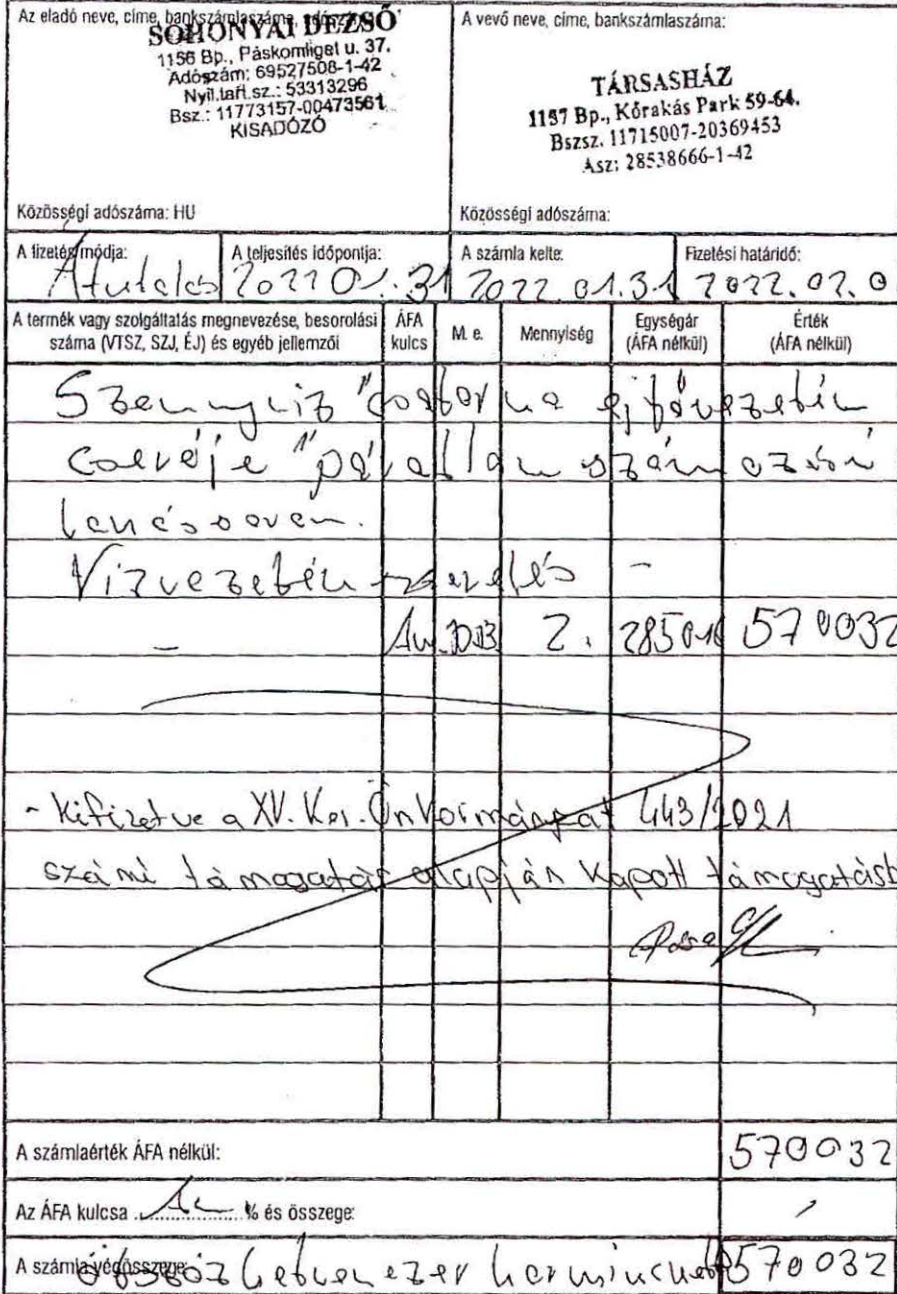 Az eladó neve, címe, bankszámlaszáma, adószáma:
SOHONYAI DEZSŐ
1156 Bp., Páskomliget u. 37.
Adószám: 69527508-1-42
Nyil.tart.sz.: 53313296
Bsz.: 11773157-00473561
KISADÓZÓ
Közösségi adószáma: HU
A vevő neve, címe, bankszámlaszáma:
TÁRSASHÁZ
1157 Bp., Kőrakás Park 59-64.
Bszsz. 11715007-20369453
Asz: 28538666-1-42
Közösségi adószáma:
A fizetés módja: Átutalás
A teljesítés időpontja: 2022 01. 31
A számla kelte: 2022. 01. 31
Fizetési határidő: 2022. 02. 0
A termék vagy szolgáltatás megnevezése, besorolási száma (VTSZ, SZJ, ÉJ) és egyéb jellemzői
ÁFA kulcs
M. e.
Mennyiség
Egységár (ÁFA nélkül)
Érték (ÁFA nélkül)
Szennyvíz csatorna
cseréje
Vízvezeték szerelés -
- 2. 285016 570032
- Kifizetve a XV. Ker. Önkormányzat 443/2021
számú támogatás alapján kapott támogatásb
A számlaérték ÁFA nélkül: 570032
Az ÁFA kulcsa % és összege:
A számla végösszege: ötszázhetvenezer harminckettő 570032